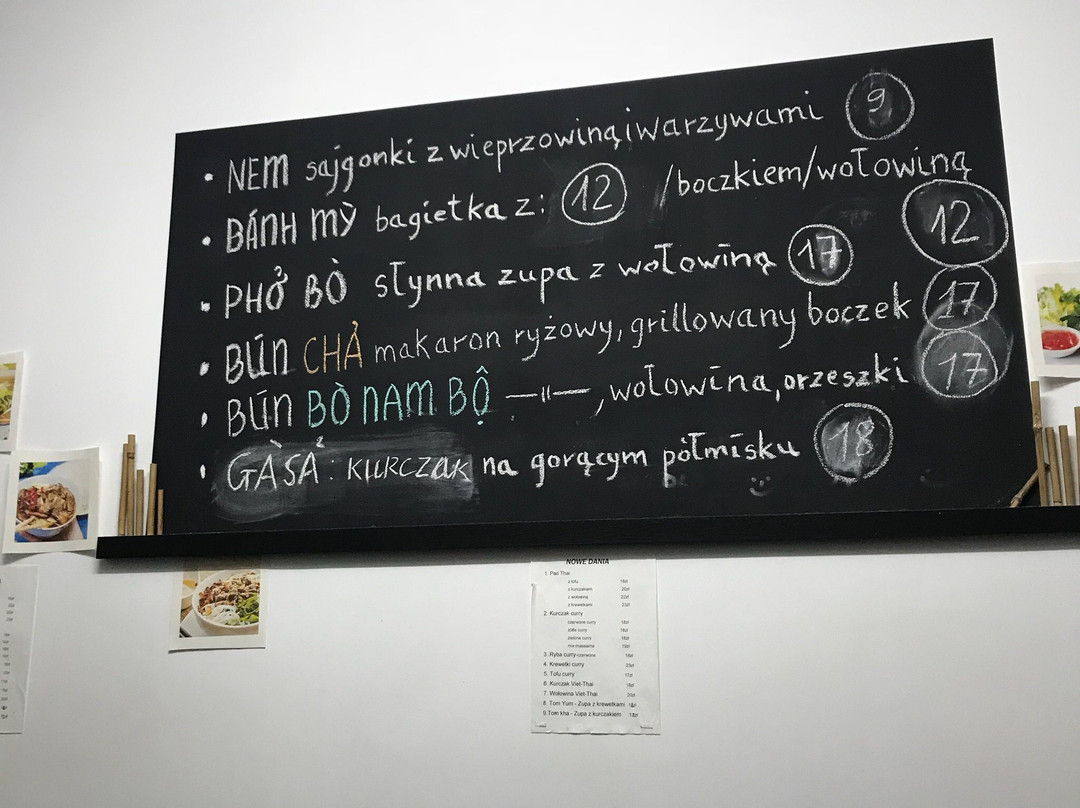 • NEM sajgonki z wieprzowiną i warzywami 9
• BÁNH MỲ bagietka z: 12 /boczkiem/wołowiną 12
• PHỞ BÒ słynna zupa z wołowiną 17
• BÚN CHẢ makaron ryżowy, grillowany boczek 17
• BÚN BÒ NAM BỘ —"—, wołowina, orzeszki 17
• GÀ SẢ: KURCZAK na gorącym półmisku 18
NOWE DANIA
1. Pad Thai
z tofu
z kurczakiem
z wołowiną
z krewetkami
2. Kurczak curry
czerwone curry
żółte curry
zielone curry
3. Ryba curry-czerwone
4. Krewetki curry
5. Tofu curry
6. Kurczak Viet-Thai
7. Wołowina Viet-Thai
8. Tom Yum - Zupa z krewetkami
9. Tom kha - Zupa z kurczakiem